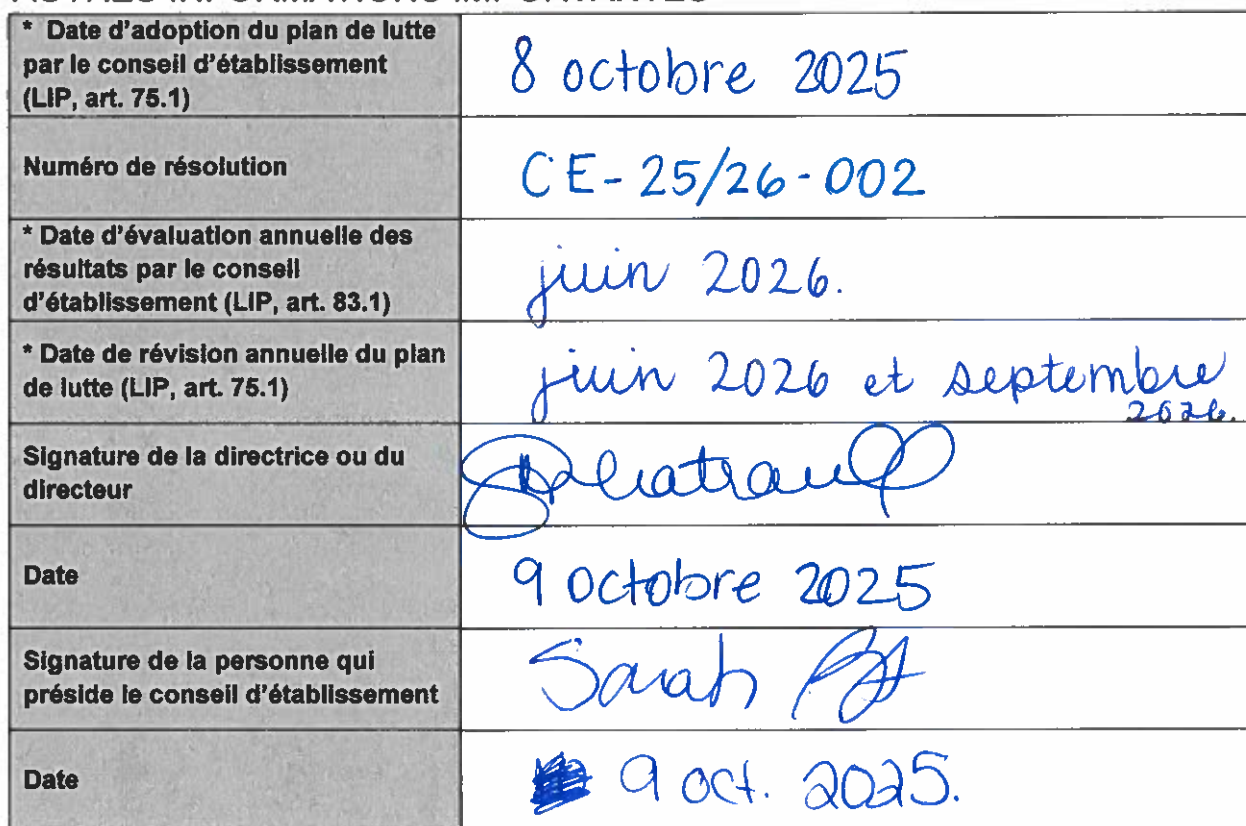 * Date d'adoption du plan de lutte
par le conseil d'établissement
(LIP, art. 75.1)
8 octobre 2025
Numéro de résolution
CE-25/26-002
* Date d'évaluation annuelle des
résultats par le conseil
d'établissement (LIP, art. 83.1)
juin 2026.
* Date de révision annuelle du plan
de lutte (LIP, art. 75.1)
juin 2026 et septembre
2026.
Signature de la directrice ou du
directeur
Date
9 octobre 2025
Signature de la personne qui
préside le conseil d'établissement
Sarah
Date
9 oct. 2025.